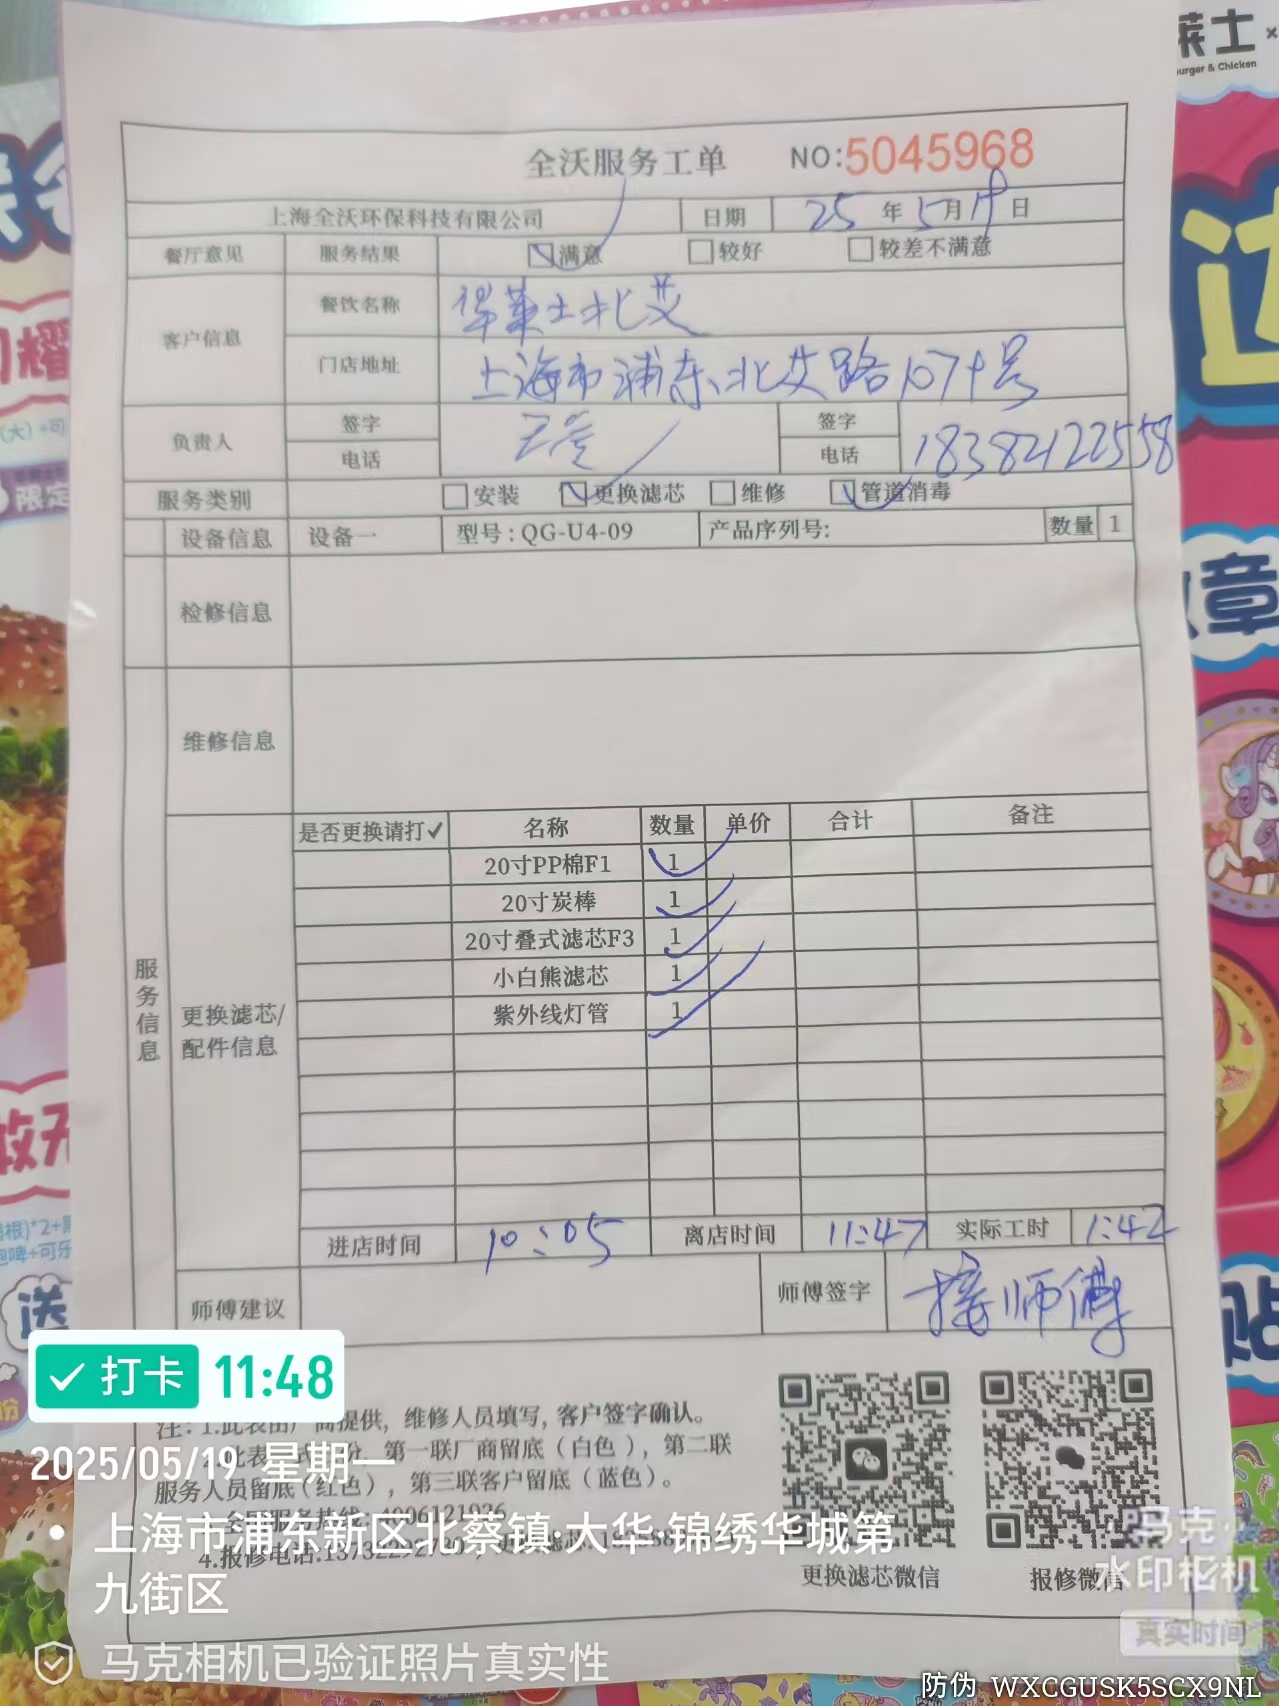 莱士×
Burger & Chicken
全沃服务工单 NO:5045968
上海全沃环保科技有限公司 日期 25年5月19日
餐厅意见 服务结果 满意 较好 较差不满意
客户信息 餐饮名称 华莱士北艾
门店地址 上海市浦东北艾路1074号
负责人 签字 签字
电话 电话 18382122558
服务类别 安装 更换滤芯 维修 管道消毒
设备信息 设备一 型号:QG-U4-09 产品序列号: 数量 1
检修信息
维修信息
服务信息
更换滤芯/
配件信息
是否更换请打✓ 名称 数量 单价 合计 备注
20寸PP棉F1 1
20寸炭棒 1
20寸叠式滤芯F3 1
小白熊滤芯 1
紫外线灯管 1
进店时间 10:05 离店时间 11:47 实际工时 1:42
师傅建议 师傅签字 接师傅
打卡 11:48
注:1.此表由厂商提供,维修人员填写,客户签字确认。
第一联厂商留底(白色),第二联
服务人员留底(红色),第三联客户留底(蓝色)。
4006121926
4.报修电话:
2025/05/19 星期一
上海市浦东新区北蔡镇·大华·锦绣华城第
九街区
更换滤芯微信 报修微信
马克
水印相机
真实时间
马克相机已验证照片真实性
防伪 WXCGUSK5SCX9NL
章
限定
送